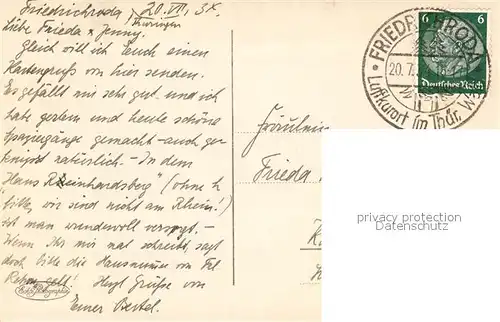 Friedrichroda, 20.VII.37.
Thüringen
Liebe Frieda u. Jenny.
Gleich will ich Euch einen
Kartengruß von hier senden.
Es gefällt mir sehr gut und ich
habe gestern und heute schöne
Spaziergänge gemacht - auch ge-
knipst natürlich - In dem
Haus Reinhardsberg" (ohne h
bitte, wir sind nicht am Rhein!)
ist man wundervoll versorgt. -
Wenn Ihr mir mal schreibt, sagt
doch bitte die Hausnummer von Frl.
Herzl. Grüße von
Eurer
Fräulein
Frieda
6 6
Deutsches Reich
FRIEDRICHRODA
20.7.
Luftkurort im Thür. W
privacy protection
Datenschutz